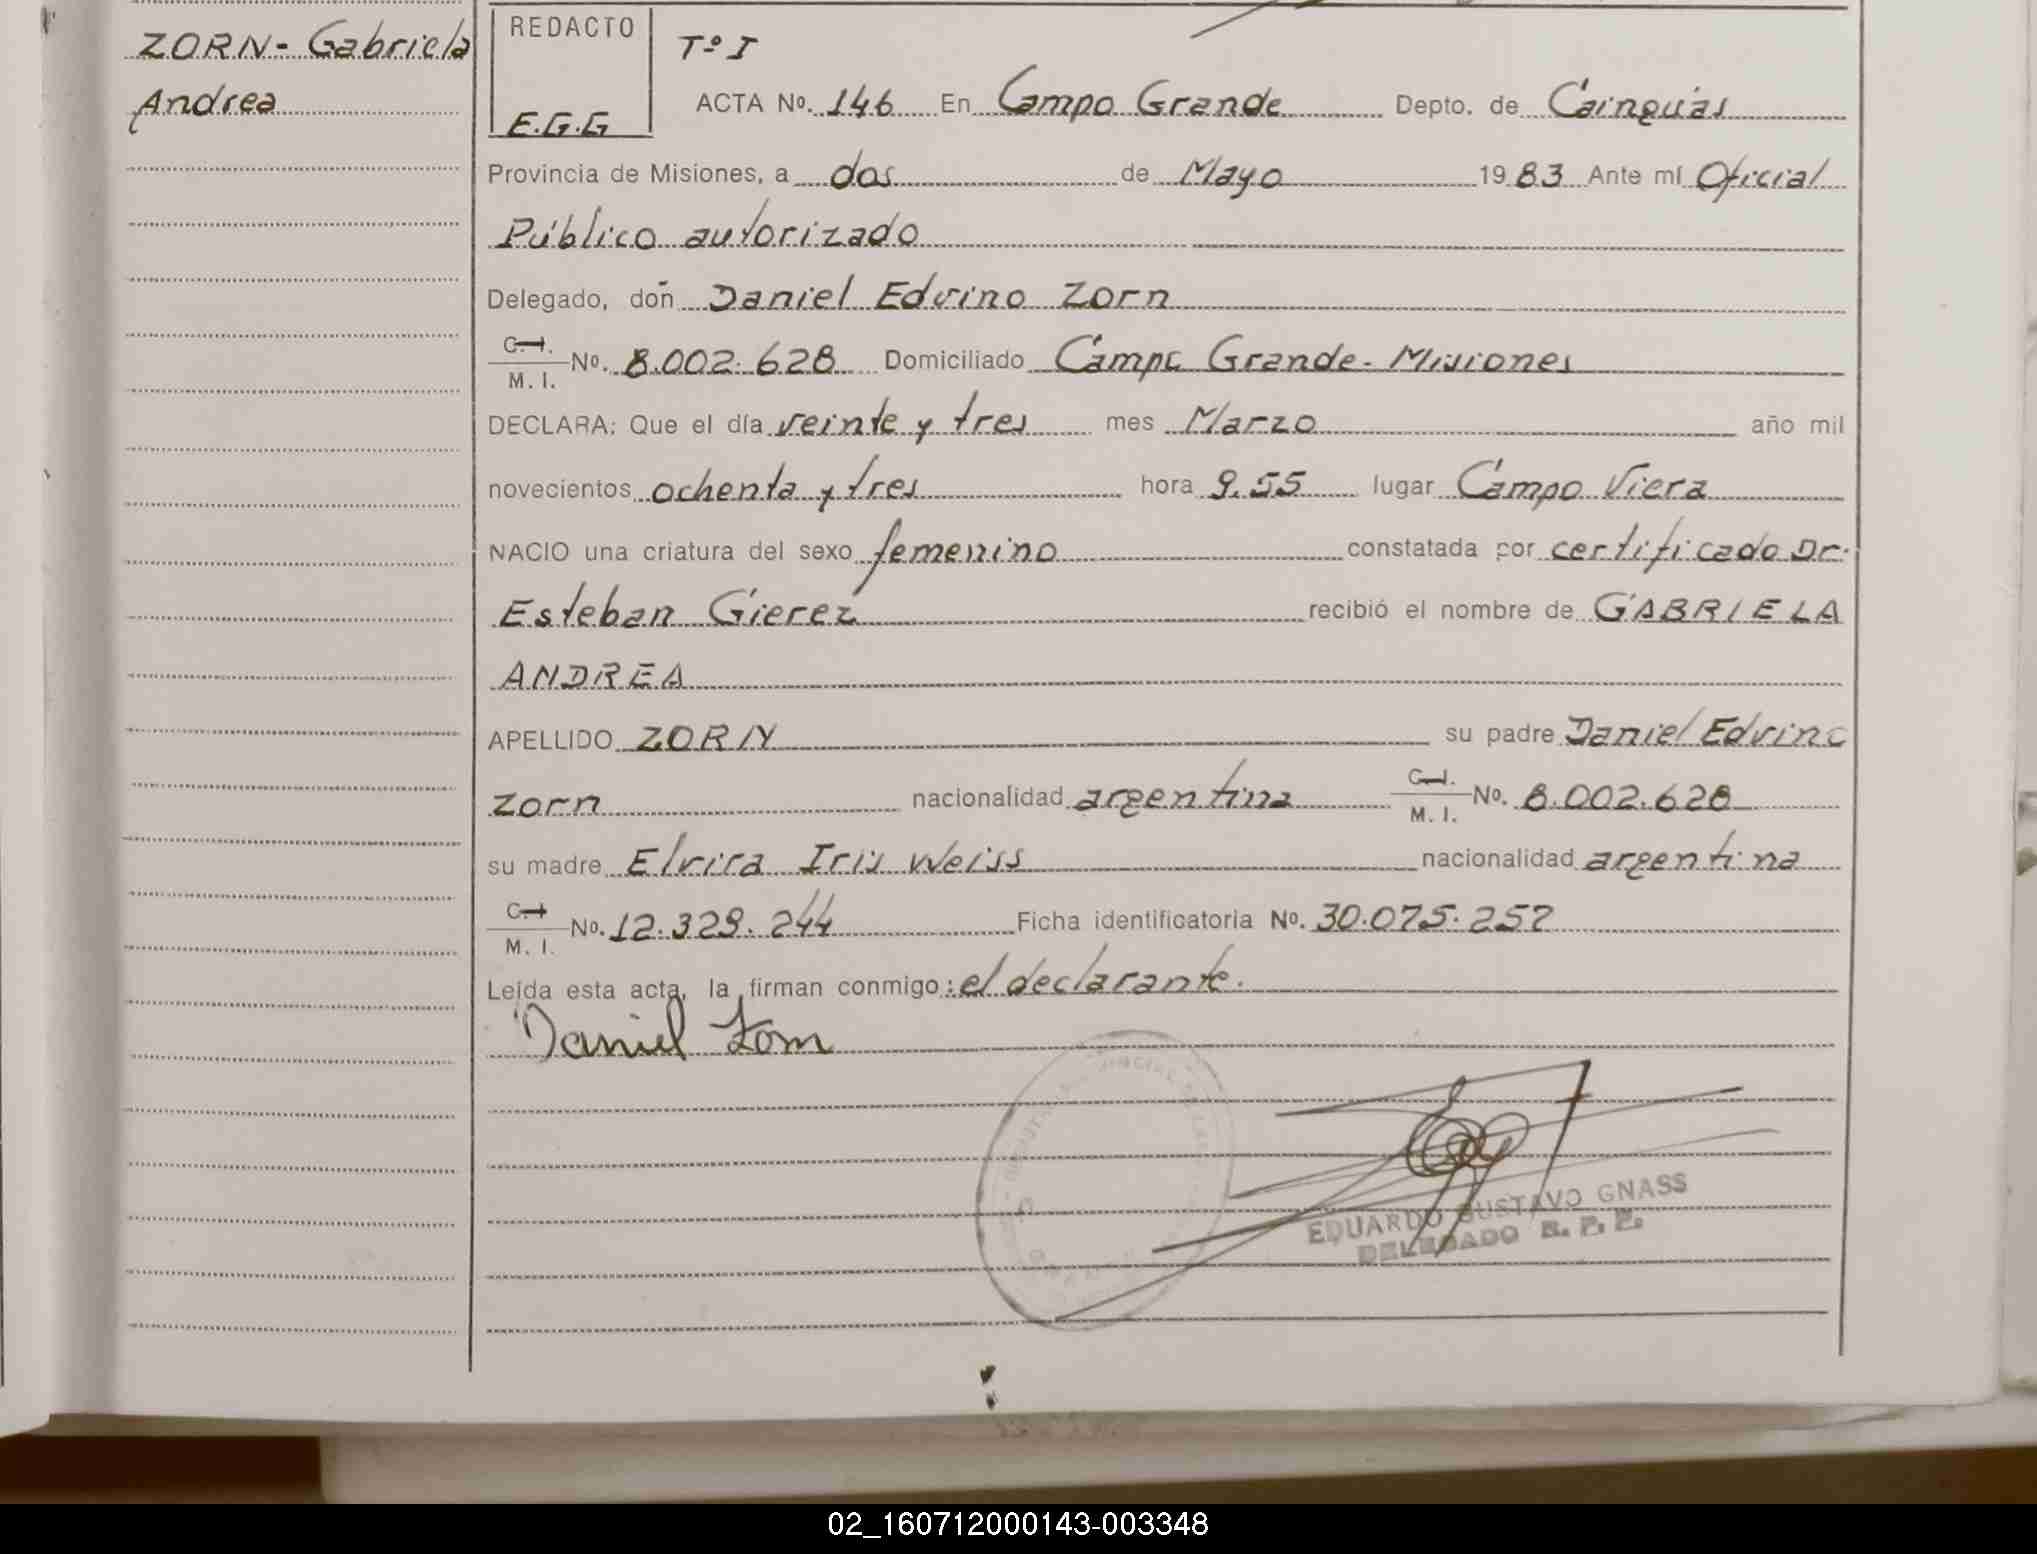 ZORN - Gabriela
Andrea
REDACTO
E.G.G
Tº I
ACTA Nº. 146 En Campo Grande Depto. de Cainguás
Provincia de Misiones, a dos de Mayo 1983 Ante mí Oficial
Público autorizado
Delegado, don Daniel Edvino Zorn
C.I.
M. I. Nº. 8.002.628 Domiciliado Campo Grande - Misiones
DECLARA: Que el día veinte y tres mes Marzo año mil
novecientos ochenta y tres hora 9.55 lugar Campo Viera
NACIO una criatura del sexo femenino constatada por certificado Dr.
Esteban Gierez recibió el nombre de GABRIELA
ANDREA
APELLIDO ZORN su padre Daniel Edvino
Zorn nacionalidad argentina C.I. M. I. Nº. 8.002.628
su madre Elvira Iris Weiss nacionalidad argentina
C.I.
M. I. Nº. 12.329.244 Ficha identificatoria Nº. 30.075.257
Leída esta acta, la firman conmigo: el declarante.
Daniel Zorn
EDUARDO GUSTAVO GNASS
DELEGADO R. P. P.
02_160712000143-003348